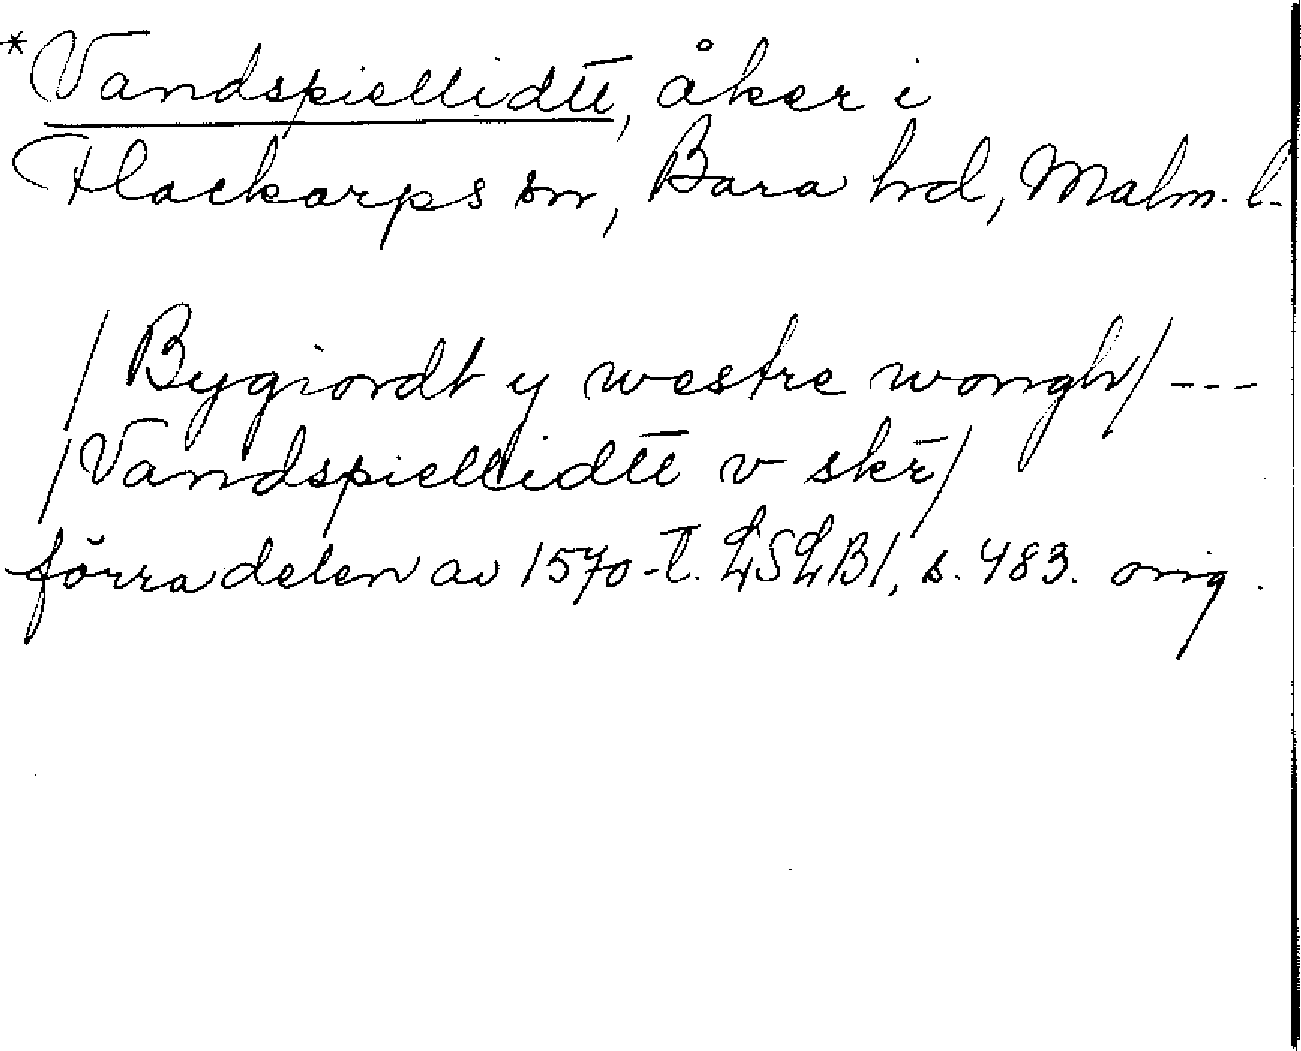 *Vandspiellidtt, åker i
Flackarps sn, Bara hd, Malm. l.
/Bygiordt y westre wongh/ ---
/Vandspiellidtt v skr̄/
förra delen av 1570-t. LSLB1, s. 483. orig.